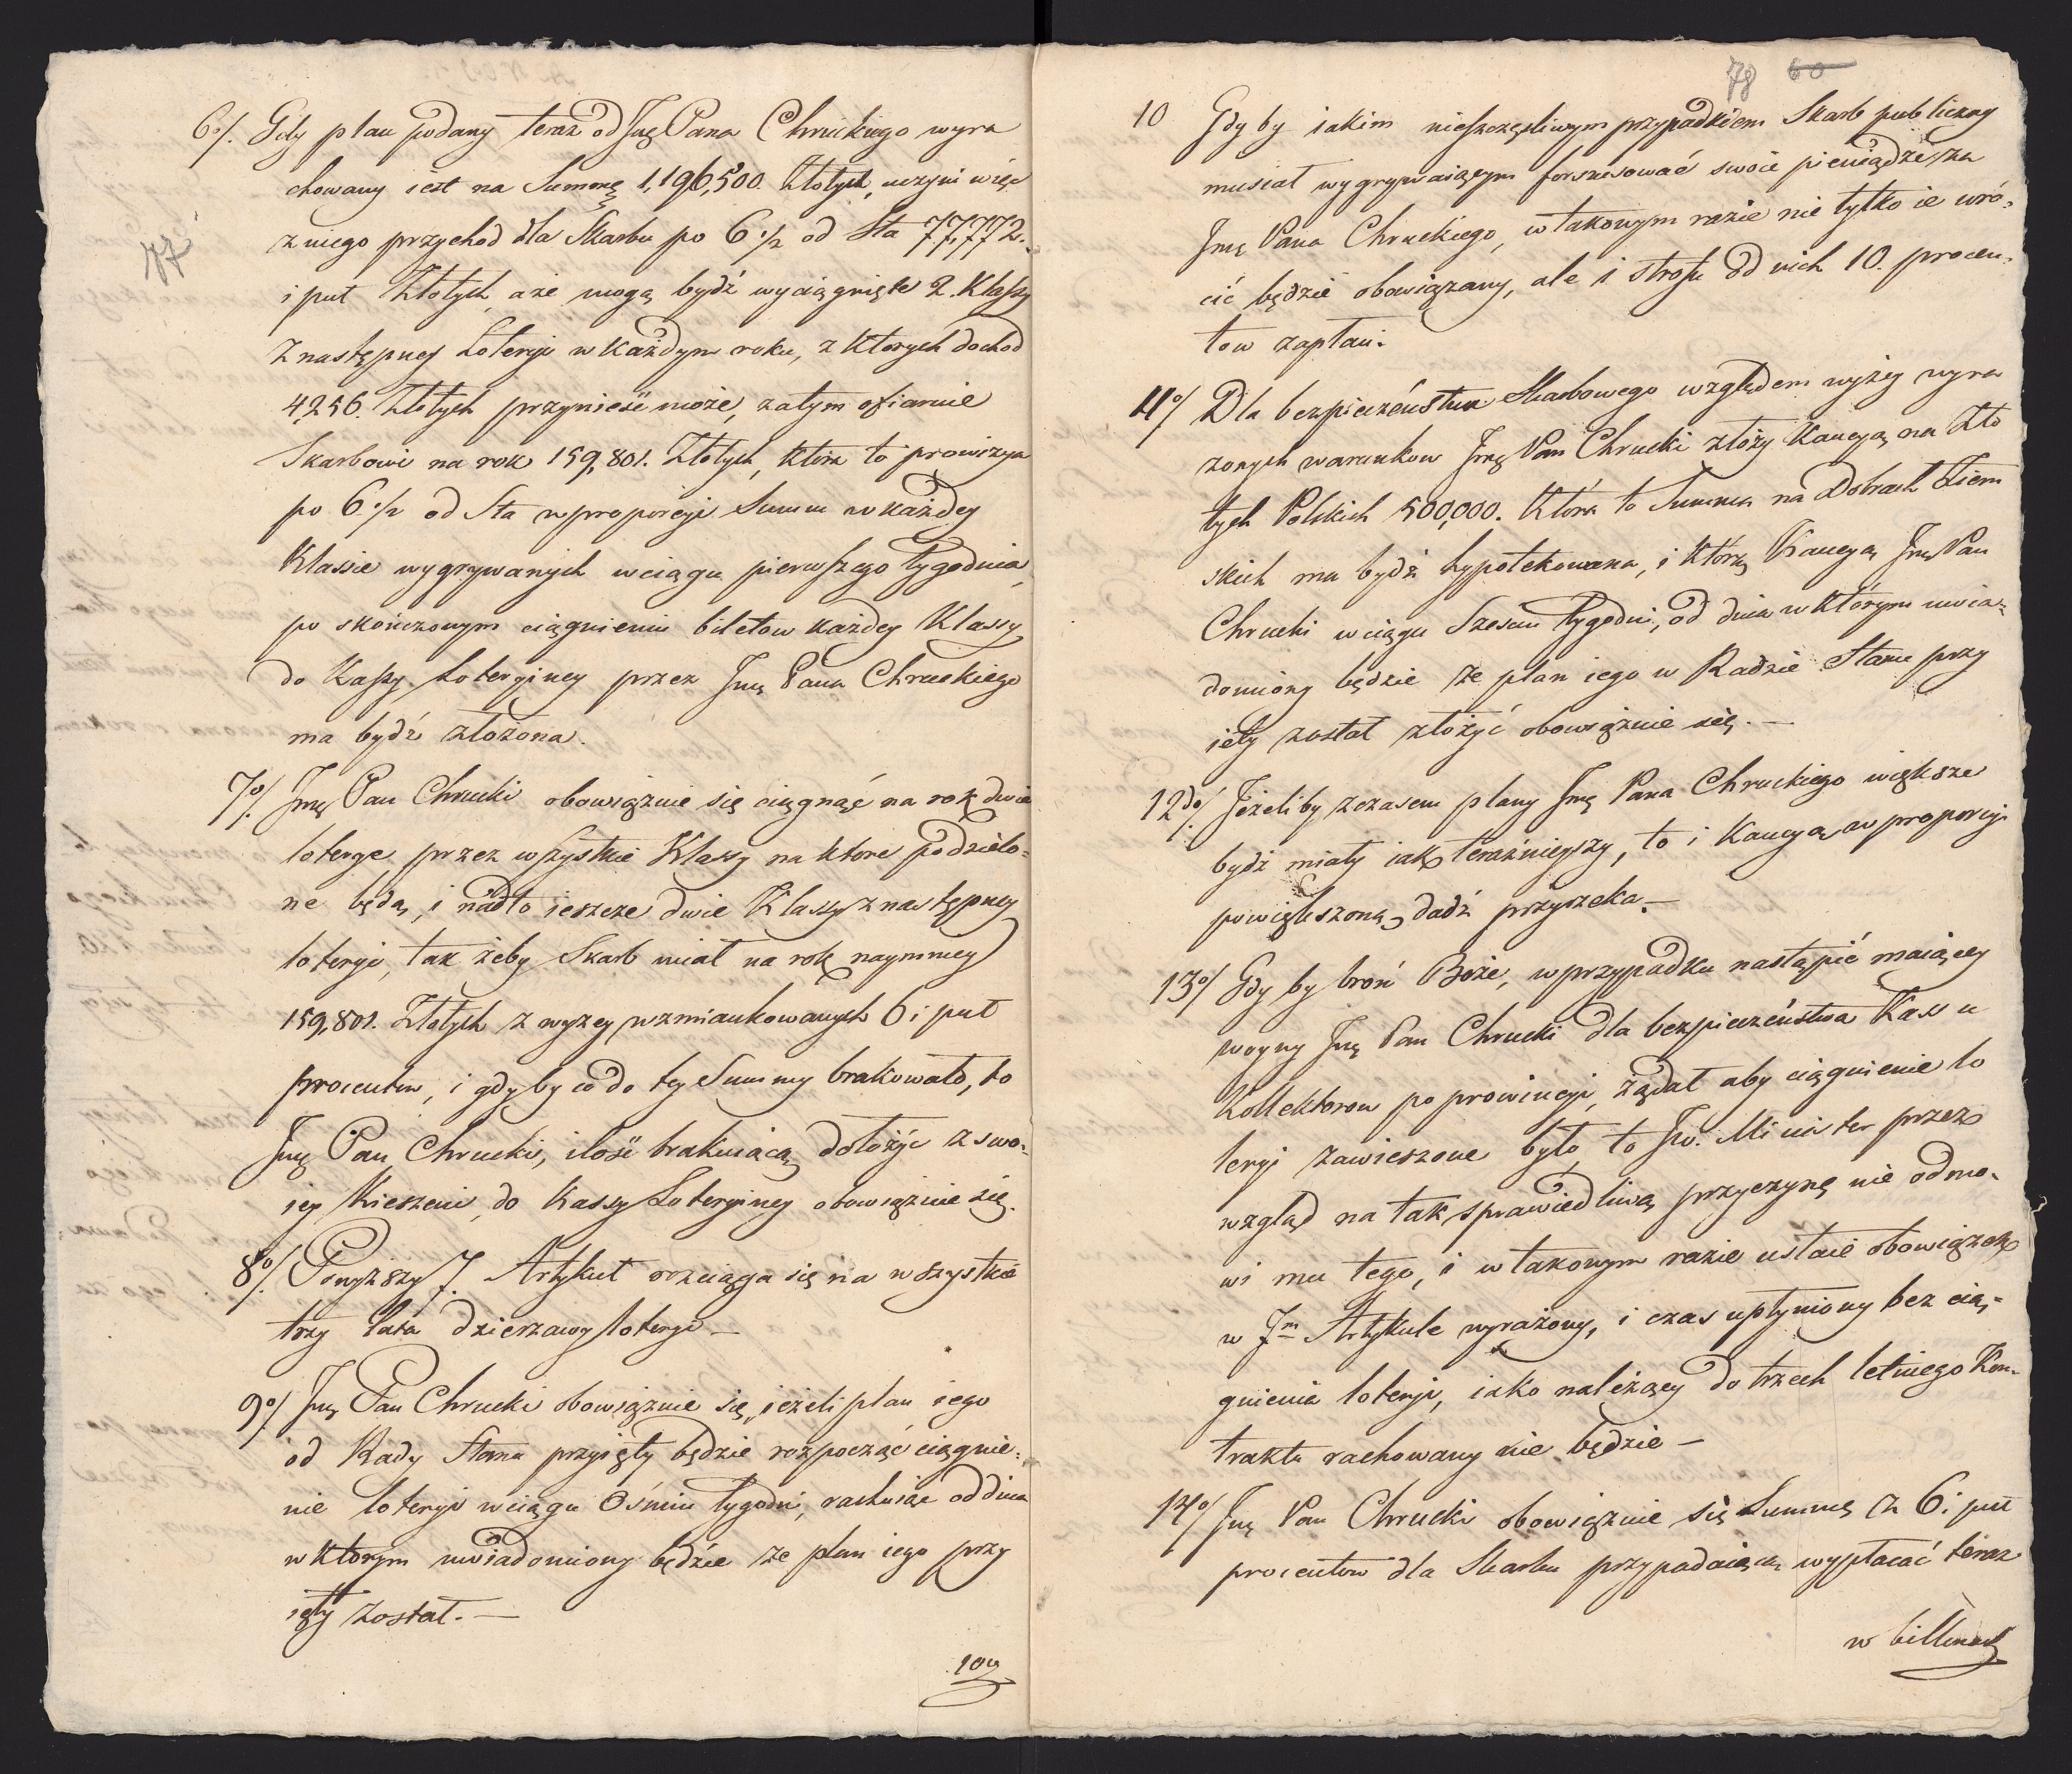 77
6o/. Gdy plan podany teraz od Jmę Pana Chruckiego wyra
chowany iest na Summę 1,196,500. Złotych, uczyni więc
z niego przychod dla Skarbu po 6 1/2 od Sta 77,772.
i puł Złotych, aże mogą bydź wyciągnięte 2. Klassy
Z następney Loteryi w każdym roku, z których dochod
4256. Złotych przynieść może, zatym ofiaruie
Skarbowi na rok 159,801. Złotych, która to prowizya
po 6 1/2 od Sta w proporcyi Summ w każdey
Klassie wygrywanych wciągu pierwszego tygodnia
po skończonym ciągnieniu biletow każdey Klassy
do Kassy Loteryiney przez Jmę Pana Chruckiego
ma bydź złożona.
7o/. Jmę Pan Chrucki obowiązuie się ciągnąć na rok dwie
loterye przez wszystkie Klassy na które podzielo-
ne będą, i nadto ieszcze dwie Klassy z następney
loteryi, tak żeby Skarb miał na rok naymniey
159,801. Złotych z wyzey wzmiankowanych 6 i puł
procentow, i gdyby co do tey Summy brakowało, to
Jmę Pan Chrucki, ilość brakuiącą dołożyć z swo-
iey Kieszeni do Kassy Loteryiney obowiązuie się.
8o/. Powyższy 7. Artykuł rozciąga się na wszystkie
trzy lata dzierzawy loteryi —
9o/. Jmę Pan Chrucki obowiązuie się, ieżeli plan iego
od Rady Stanu przyięty będzie rozpocząć ciągnie-
nie loteryi wciągu Ośmiu tygodni, rachuiąc od dnia
w którym uwiadomiony będzie ze plan iego przy
ięty został. —
10o
78 60
10 Gdy by iakim nieszczęśliwym przypadkiem Skarb publiczny
musiał wygrywaiącym forszusować swoie pieniądze za
Jmę Pana Chruckiego, w takowym razie nie tylko ie wró-
cić będzie obowiązany, ale i strofu od nich 10. procen-
tow zapłaci.
11o/ Dla bezpieczeństwa Skarbowego względem wyżey wyra
zonych warunkow Jmę Pan Chrucki złoży Kaucyą na Zło
tych Polskich 500,000. Która to Summa na Dobrach Ziem
skich ma bydź hypotekowana, i którą Kaucyą Jmę Pan
Chrucki wciągu Szesciu tygodni, od dnia w którym uwia-
domiony będzie ze plan iego w Radzie Stanu przy
ięty został złożyć obowiązuie się. —
12do/. Jeżeliby z czasem plany Jmę Pana Chruckiego większe
bydź miały iak teraźnieyszy, to i Kaucyą w proporcyi
powiększoną dadź przyrzeka. —
13o/ Gdy by broń Boże, w przypadku nastąpić maiącey
woyny Jmę Pan Chrucki dla bezpieczeństwa Kass u
Kollektorow po prowincyi, żądał aby ciągnienie lo
teryi zawieszone było, to Jw. Minister przez
wzgląd na tak sprawiedliwą przyczynę nie odmo-
wi mu tego, i w takowym razie ustaie obowiązek
w 7m Artykule wyrażony, i czas upłyniony bez cią-
gnienia loteryi, iako należący do trzech letniego Kon-
traktu rachowany nie będzie —
14o/ Jmę Pan Chrucki obowiązuie się Summę z 6. i puł
procentow dla Skarbu przypadaiącą wypłacać teraz
w